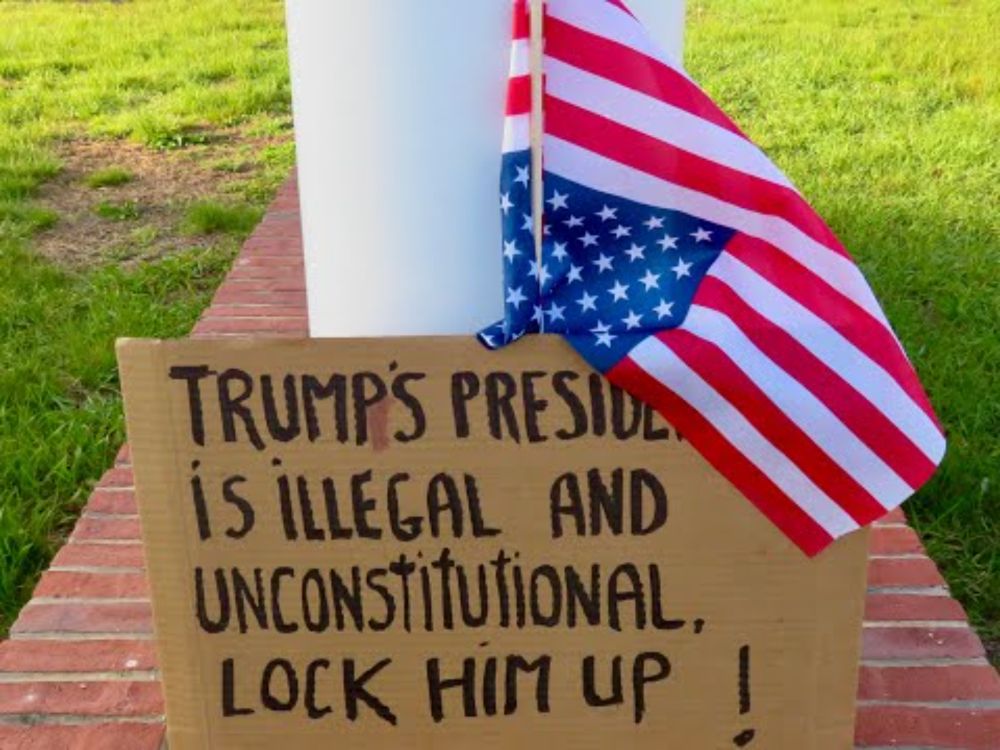 TRUMP'S
iS iLLEGAL AND
UNCONSTiTUTiONAL,
LOCK HiM UP !